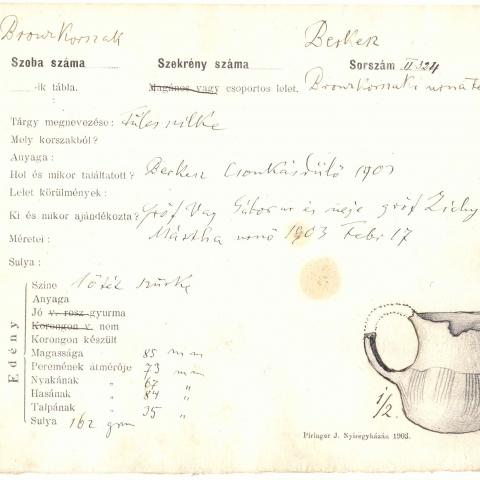 Bronzkorszak Berkesz
Szoba száma Szekrény száma Sorszám II 324
-ik tábla. Magános vagy csoportos lelet. Bronzkorszaki urnate
Tárgy megnevezése: Füles silke
Mely korszakból?
Anyaga:
Hol és mikor találtatott? Berkesz Csonkásdülő 1901
Lelet körülmények:
Ki és mikor ajándékozta? Gróf Vay Gábor ur és neje gróf Zichy
Méretei: Mártha urnő 1903 Febr 17
Sulya:
Edény
Szine sötét szürke
Anyaga
Jó v. rosz gyurma
Korongon v. nem
Korongon készült
Magassága 85 mm
Peremének átmérője 73 mm
Nyakának " 67 "
Hasának " 84 "
Talpának " 35 "
Sulya 162 grm
1/2.
Piringer J. Nyiregyházán 1903.